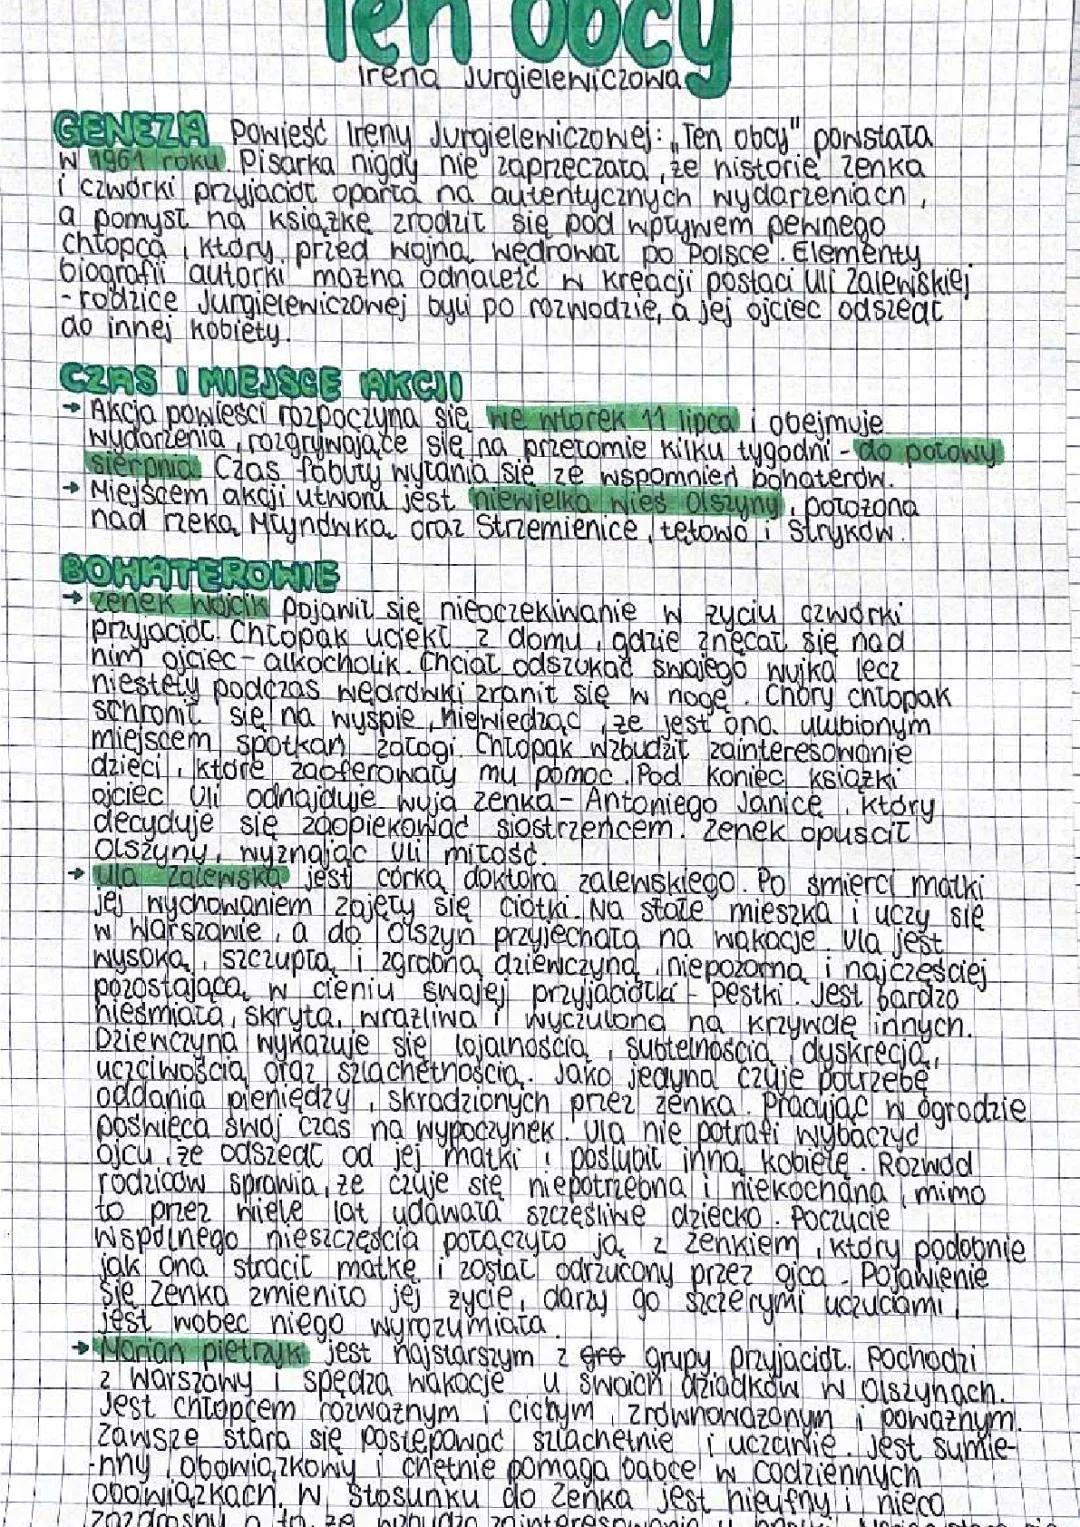 Ten obcy
Irena Jurgielewiczowa
GENEZA Powieść Ireny Jurgielewiczowej: „Ten obcy" powstała
w 1961 roku. Pisarka nigdy nie zaprzeczała, że historię Zenka
i czwórki przyjaciół oparła na autentycznych wydarzeniach,
a pomysł na książkę zrodził się pod wpływem pewnego
chłopca, który przed wojną wędrował po Polsce. Elementy
biografii autorki można odnaleźć w kreacji postaci Uli Zalewskiej
- rodzice Jurgielewiczowej byli po rozwodzie, a jej ojciec odszedł
do innej kobiety.
CZAS I MIEJSCE AKCJI
→ Akcja powieści rozpoczyna się we wtorek 11 lipca i obejmuje
wydarzenia, rozgrywające się na przełomie kilku tygodni - do połowy
sierpnia. Czas fabuły wyłania się ze wspomnień bohaterów.
→ Miejscem akcji utworu jest niewielka wieś Olszyny, położona
nad rzeką Młynówką oraz Strzemienice, Łętowo i Stryków.
BOHATEROWIE
→ Zenek Wójcik pojawił się nieoczekiwanie w życiu czwórki
przyjaciół. Chłopak uciekł z domu, gdzie znęcał się nad
nim ojciec - alkocholik. Chciał odszukać swojego wujka lecz
niestety podczas wędrówki zranił się w nogę. Chory chłopak
schronił się na wyspie, niewiedząc, że jest ona ulubionym
miejscem spotkań załogi. Chłopak wzbudził zainteresowanie
dzieci, które zaoferowały mu pomoc. Pod koniec książki
ojciec Uli odnajduje wuja Zenka - Antoniego Janicę, który
decyduje się zaopiekować siostrzeńcem. Zenek opuścił
Olszyny, wyznając Uli miłość.
→ Ula Zalewska jest córką doktora Zalewskiego. Po śmierci matki
jej wychowaniem zajęły się ciotki. Na stałe mieszka i uczy się
w Warszawie, a do Olszyn przyjechała na wakacje. Ula jest
wysoką, szczupłą i zgrabną dziewczyną, niepozorną i najczęściej
pozostającą w cieniu swojej przyjaciółki - Pestki. Jest bardzo
nieśmiała, skryta, wrażliwa i wyczulona na krzywdę innych.
Dziewczyna wykazuje się lojalnością, subtelnością, dyskrecją,
uczciwością oraz szlachetnością. Jako jedyna czuje potrzebę
oddania pieniędzy, skradzionych przez Zenka. Pracując w ogrodzie
poświęca swój czas na wypoczynek. Ula nie potrafi wybaczyć
ojcu, że odszedł od jej matki i poślubił inną kobietę. Rozwód
rodziców sprawia, że czuje się niepotrzebna i niekochana, mimo
to przez wiele lat udawała szczęśliwe dziecko. Poczucie
wspólnego nieszczęścia połączyło ją z Zenkiem, który podobnie
jak ona stracił matkę i został odrzucony przez ojca. Pojawienie
się Zenka zmieniło jej życie, darzy go szczerymi uczuciami,
jest wobec niego wyrozumiała.
→ Marian Pietrzyk jest najstarszym z gro grupy przyjaciół. Pochodzi
z Warszawy i spędza wakacje u swoich dziadków w Olszynach.
Jest chłopcem rozważnym i cichym, zrównoważonym i poważnym.
Zawsze stara się postępować szlachetnie i uczciwie. Jest sumie-
-nny, obowiązkowy i chętnie pomaga babce w codziennych
obowiązkach. W stosunku do Zenka jest nieufny i nieco
zazdrosny o to, że wzbudza zainteresowanie u